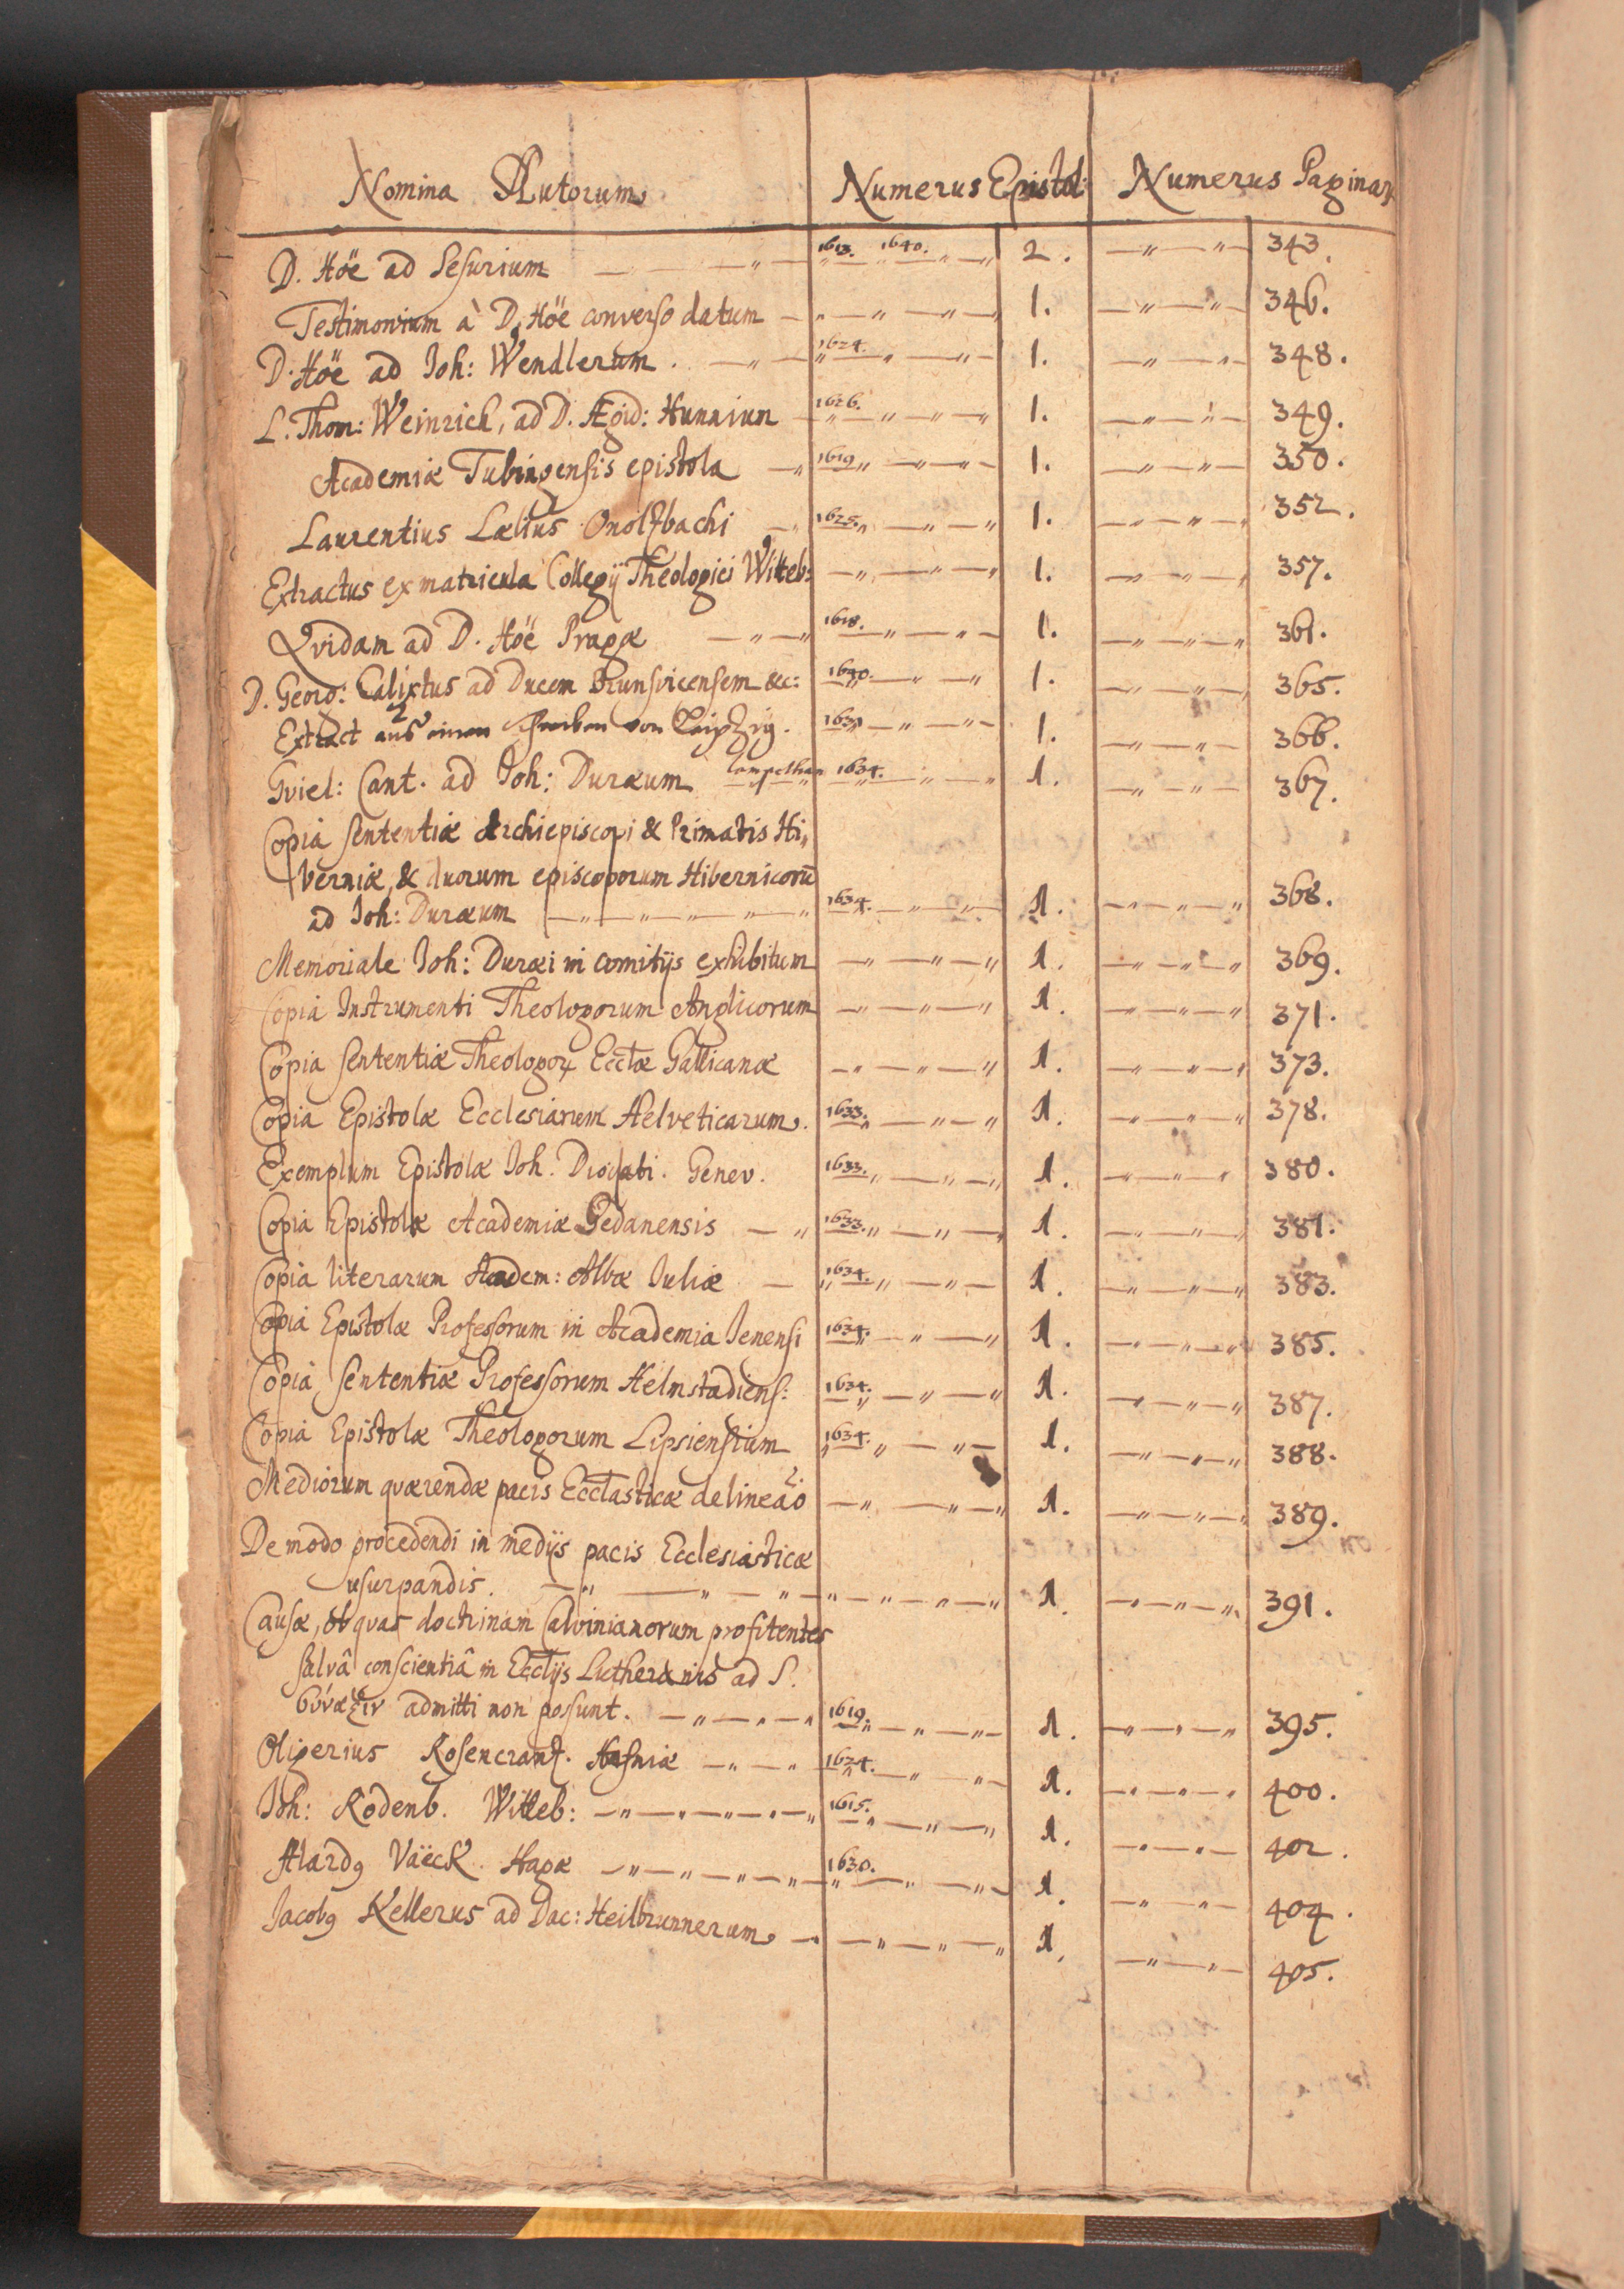 Nomina Autorum Numerus Epistol: Numerus Paginar
D. Höe ad Sesurium 1613. 1640. 2. 343.
Testimonium à D. Höe converso datum 1. 346.
D. Höe ad Joh: Wendlerum. 1624. 1. 348.
L. Thom: Weinrich, ad D. Ægid: Hunnium 1626. 1. 349.
Academiæ Tubingensis epistola 1619 1. 350.
Laurentius Lælius Onoltzbachi 1625. 1. 352.
Extractus ex matricula Collegij Theologici Witteb: 1. 357.
Qvidam ad D. Höe Pragæ 1618. 1. 361.
D. Georg: Calixtus ad Ducem Brunsvicensem &c: 1640. 1. 365.
Extract auß einen schreiben von Leipzig. 1631 1. 366.
Gviel: Cant. ad Joh: Duræum 1634. 1. 367.
Copia sententiæ Archiepiscopi & Primatis Hi„
berniæ, & duorum episcoporum Hibernicorū
ad Joh: Duræum 1634. 1. 368.
Memoriale Joh: Duræi in comitijs exhibitum 1. 369.
Copia Instrumenti Theologorum Anglicorum 1. 371.
Copia sententiæ Theologoꝝ Ecctæ Gallicanæ 1. 373.
Copia Epistolæ Ecclesiarum Helveticarum. 1633. 1. 378.
Exemplum Epistolæ Joh. Diodati. Genev. 1633. 1. 380.
Copia Epistolæ Academiæ Gedanensis 1633. 1. 381.
Copia literarum Academ: Albæ Juliæ 1634. 1. 383.
Copia Epistolæ Professorum in Academia Jenensi 1634. 1. 385.
Copia sententiæ Professorum Helmstadiens: 1634. 1. 387.
Copia Epistolæ Theologorum Lipsiensium 1634. 1. 388.
Mediorum qværendæ pacis Ecctasticæ delineão 1. 389.
De modo procedendi in medijs pacis Ecclesiasticæ
usurpandis. 1. 391.
Causæ, ob qvas doctrinam Calvinianorum profitentes
salvâ conscientiâ in Ecctijs Lutheranis ad S.
σύναξιν admitti non possunt. 1619. 1. 395.
Oligerius Rosencrantz. Hafniæ 1624. 1. 400.
Joh: Rodenb. Witteb: 1615. 1. 402.
Alardꝰ Väeck. Hagæ 1630. 1. 404.
Jacobꝰ Kellerus ad Jac: Heilbrunnerum 1. 405.